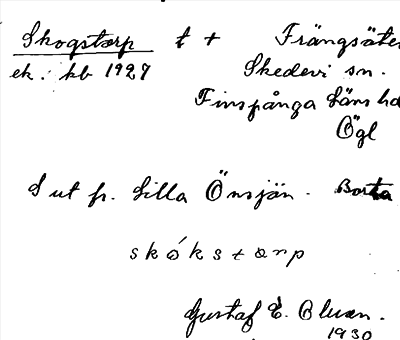 Skogstorp t + Frängsäte
ek. kb 1927 Skedevi sn.
Finspånga läns hd
Ögl
S ut fr. Lilla Önsjön. Borta
skókstorp
Gustaf E. Bluan.
1930